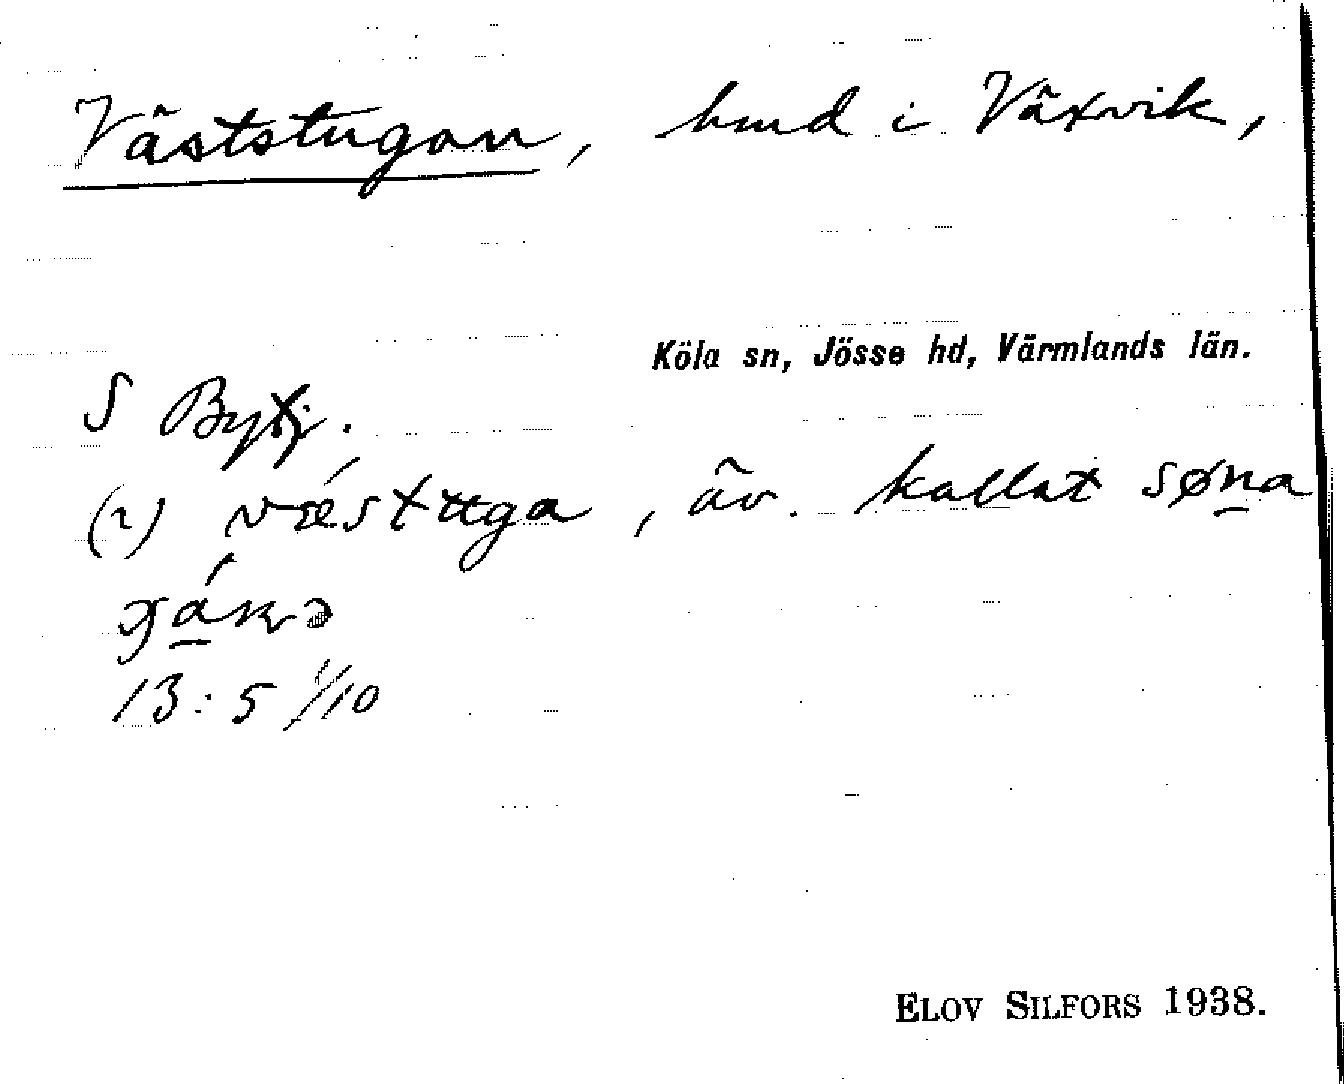 Väststugan, hmd i Växvik,
Köla sn, Jösse hd, Värmlands län.
S Bytj.
(2) vǽstuga, äv. kallat søna
gá
13:5 1/10
ELOV SILFORS 1938.